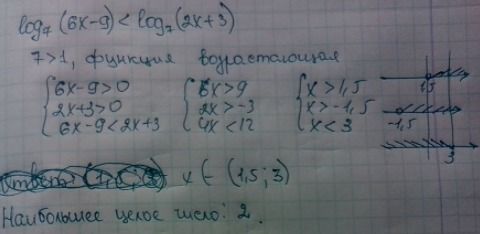 log₇(6x-9) < log₇(2x+3)
7>1, функция возрастающая
{6x-9>0 {6x>9 {x>1,5
{2x+3>0 {2x>-3 {x>-1,5
{6x-9<2x+3 {4x<12 {x<3
1,5
-1,5
3
x ∈ (1,5; 3)
Наибольшее целое число: 2.